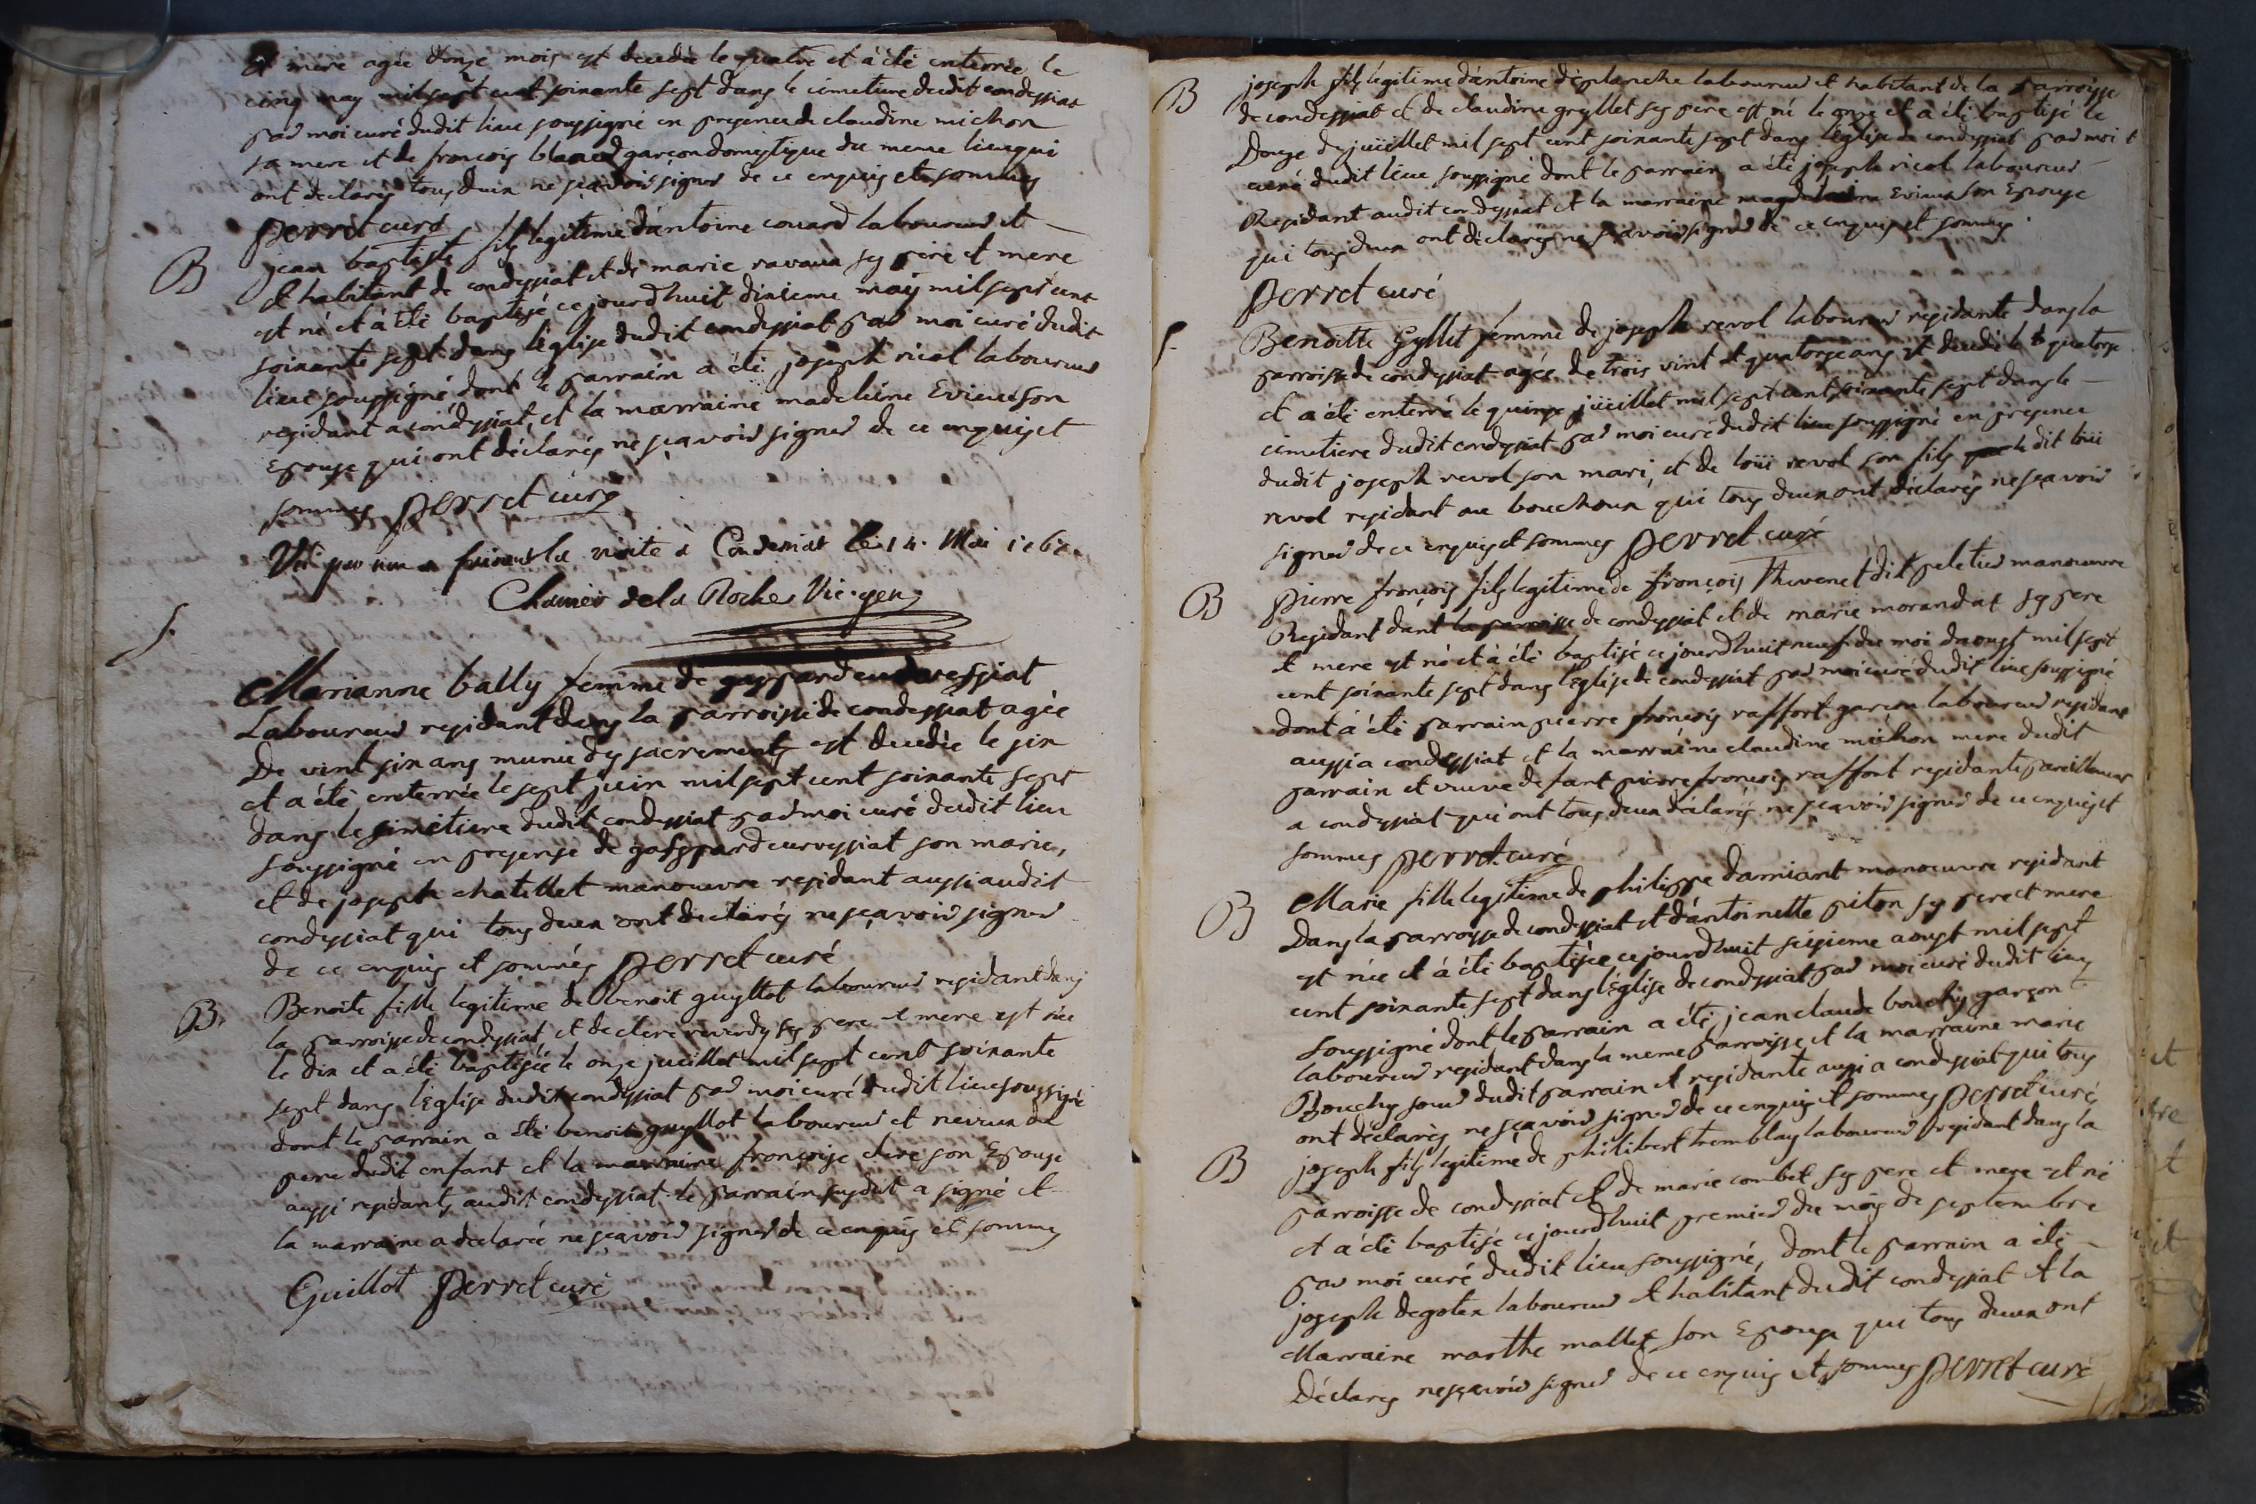 et mere agée donze mois est decedée le quatre et à été enterrée le
cinq may mil sept cent soixante sept dans le cimetiere dudit condessiat
par moi curé dudit lieu soussigné en presence de claudine michon
sa mere et de francois blanc garcon domestique du meme lieu qui
ont declarés tous deux ne sçavoir signer de ce enquis et sommes
perret curé
B
jean baptiste fils legitime d'antoine couard laboureur et
et habitant de condessiat et de marie ravaux ses pere et mere
est né et à été baptisé ce jourdhuit dixieme may mil sept cent
soixante sept dans l'église dudit condessiat par moi curé dudit
lieu soussigné dont le parrain a été joseph nicol laboureur
residant a condessiat, et la marraine madeleine Evieux son
Epouse qui ont déclarés ne sçavoir signer de ce enquis et
sommes perret curé
Vû par nous faisant la visite à Condesiat le 14. Mai 176
de la Roche Vic. gen.
S.
Marianne bally femme de gaspard curvessiat
Laboureur residant dans la parroisse de condessiat agée
De vint six ans munie des sacrements est decedée le six
et a été enterrée le sept juin mil sept cent soixante sept
dans le simetiere dudit condessiat par moi curé dudit lieu
soussigné en presense de gaspard curvessiat son marie,
et de joseph chatillet manoeuvre residant aussi audit
condessiat qui tous deux ont declarés ne sçavoir signer
de ce enquis et sommés perret curé
B.
Benoite fille legitime de benoit guyllot laboureur residant dans
la parroisse de condessiat, et de clere reverdy ses pere et mere est née
le dix et a été baptisée le onze jueillet mil sept cent soixante
sept dans l'Eglise dudit condessiat par moi curé dudit lieu soussigné
dont le parrain a été benoit guyllot laboureur et neveux du
pere dudit enfant et la marraine françoise clere son Epouse
aussi residants audit condessiat le parrain susdit a signé et
la marraine a declarée ne sçavoir signer de ce enquis et sommes
Guillot perret curé
B
joseph fils legitime d'antoine déplanche laboureur et habitant de la parroisse
de condessiat et de claudine greyllet ses pere est né le onze et a été baptisé le
Douze de juiellet mil sept cent soixante sept dans l'église de condessiat par moi
curé dudit lieu soussigné dont le parrain a été joseph nicol laboureur
Residant audit condessiat et la marraine Evieux son Epouse
qui tous deux ont déclarés ne sçavoir signer de ce enquis et sommes
perret curé
S.
Benoitte Gyllet femme de joseph revol laboureur residante dans la
parroisse de condessiat agée de trois vint et quatorze ans est decedé le quatorze
et a été enterré le quinze juieillet mil sept cent soixante sept dans le
cimetiere dudit condessiat par moi curé dudit lieu soussigné en presence
dudit joseph revol son mari, et de loüi revol son fils dit loüi
revol residant au bouchoux qui tous deux ont déclarés ne sçavoir
signer de ce enquis et sommes perret curé
B
Pierre françois fils legitime de françois Thevenet dit peletier manoeuvre
Residant dant la parroisse de condessiat et de marie morandat ses pere
et mere est né et à été baptisé ce jourdhuit neuf du moi daoust mil sept
cent soixante sept dans l'église de condessiat par moi curé dudit lieu soussigné
dont à été parrain pierre françois raffort garçon laboureur residant
aussi a condessiat et la marraine claudine michon mere dudit
parrain et veuve defunt pierre francois raffort residante pareillement
a condessiat qui ont tous deux déclarés ne sçavoir signer de ce enquis et
sommes perret curé
B
Marie fille legitime de philippe damiant manoeuvre residant
Dans la parroisse de condessiat et d'antoinette piton ses pere et mere
est née et à été baptisée ce jourdhuit seizieme aoust mil sept
cent soixante sept dans l'église de condessiat par moi curé dudit lieu
soussigné dont le parrain a été jean claude bouchy garçon
laboureur residant dans la meme parroisse, et la marraine marie
Bouchy soeur dudit parrain et residante aussi a condessiat qui tous
ont déclarés ne sçavoir signer de ce enquis et sommes perret curé
B
joseph fils legitime de philibert tremblay laboureur residant dans la
parroisse de condessiat et de marie combet ses pere et mere est né
et à été baptisé ce jourdhuit premier du mois de septembre
par moi curé dudit lieu soussigné, dont le parrain a été
joseph degotex laboureur et habitant dudit condessiat et la
Marraine marthe mallet son Epouse qui tous deux ont
Déclarés ne sçavoir signer de ce enquis et sommes perret curé